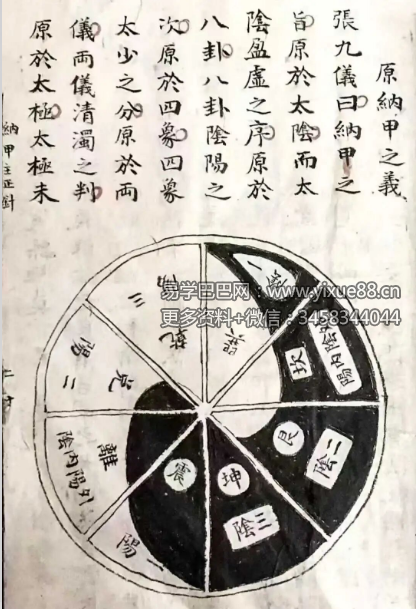 原納甲之義
張九儀曰納甲之
旨原於太陰而太
陰盈虛之序原於
八卦八卦陰陽之
次原於四象四象
太少之分原於兩
儀兩儀清濁之判
原於太極太極未
易学巴巴网：www.yixue88.cn
更多资料+微信：3458344044
乾
三
兌
陽二
離
陰內陽外
震
陽一
坤
陰三
艮
陰二
坎
陽內陰
巽